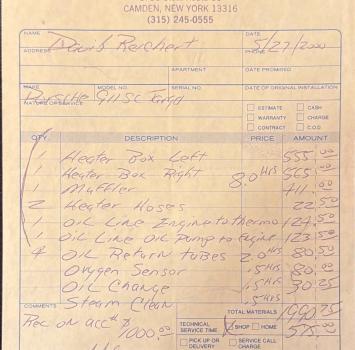 CAMDEN, NEW YORK 13316
(315) 245-0555
NAME David Reichert DATE 5/27/2000
ADDRESS
APARTMENT DATE PROMISED
MAKE Porsche MODEL NO. 911SC Targa SERIAL NO. DATE OF ORIGINAL INSTALLATION
NATURE OF SERVICE
ESTIMATE CASH
WARRANTY CHARGE
CONTRACT C.O.D.
QTY. DESCRIPTION PRICE AMOUNT
1 Heater Box Left 555.00
1 Heater Box Right 8.0 HRS 565.00
1 Muffler 411.00
2 Heater Hoses 22.50
1 Oil Line Engine to thermo 124.50
1 Oil Line Oil Pump to Engine 123.50
4 Oil Return tubes 2.0 HRS 80.50
Oxygen Sensor .5 HRS 80.00
Oil Change .5 HRS 30.25
Steam Clean .5 HRS
COMMENTS TOTAL MATERIALS
Rec on acct $ 1000.00
TECHNICAL SERVICE TIME SHOP HOME
PICK UP OR DELIVERY SERVICE CALL CHARGE